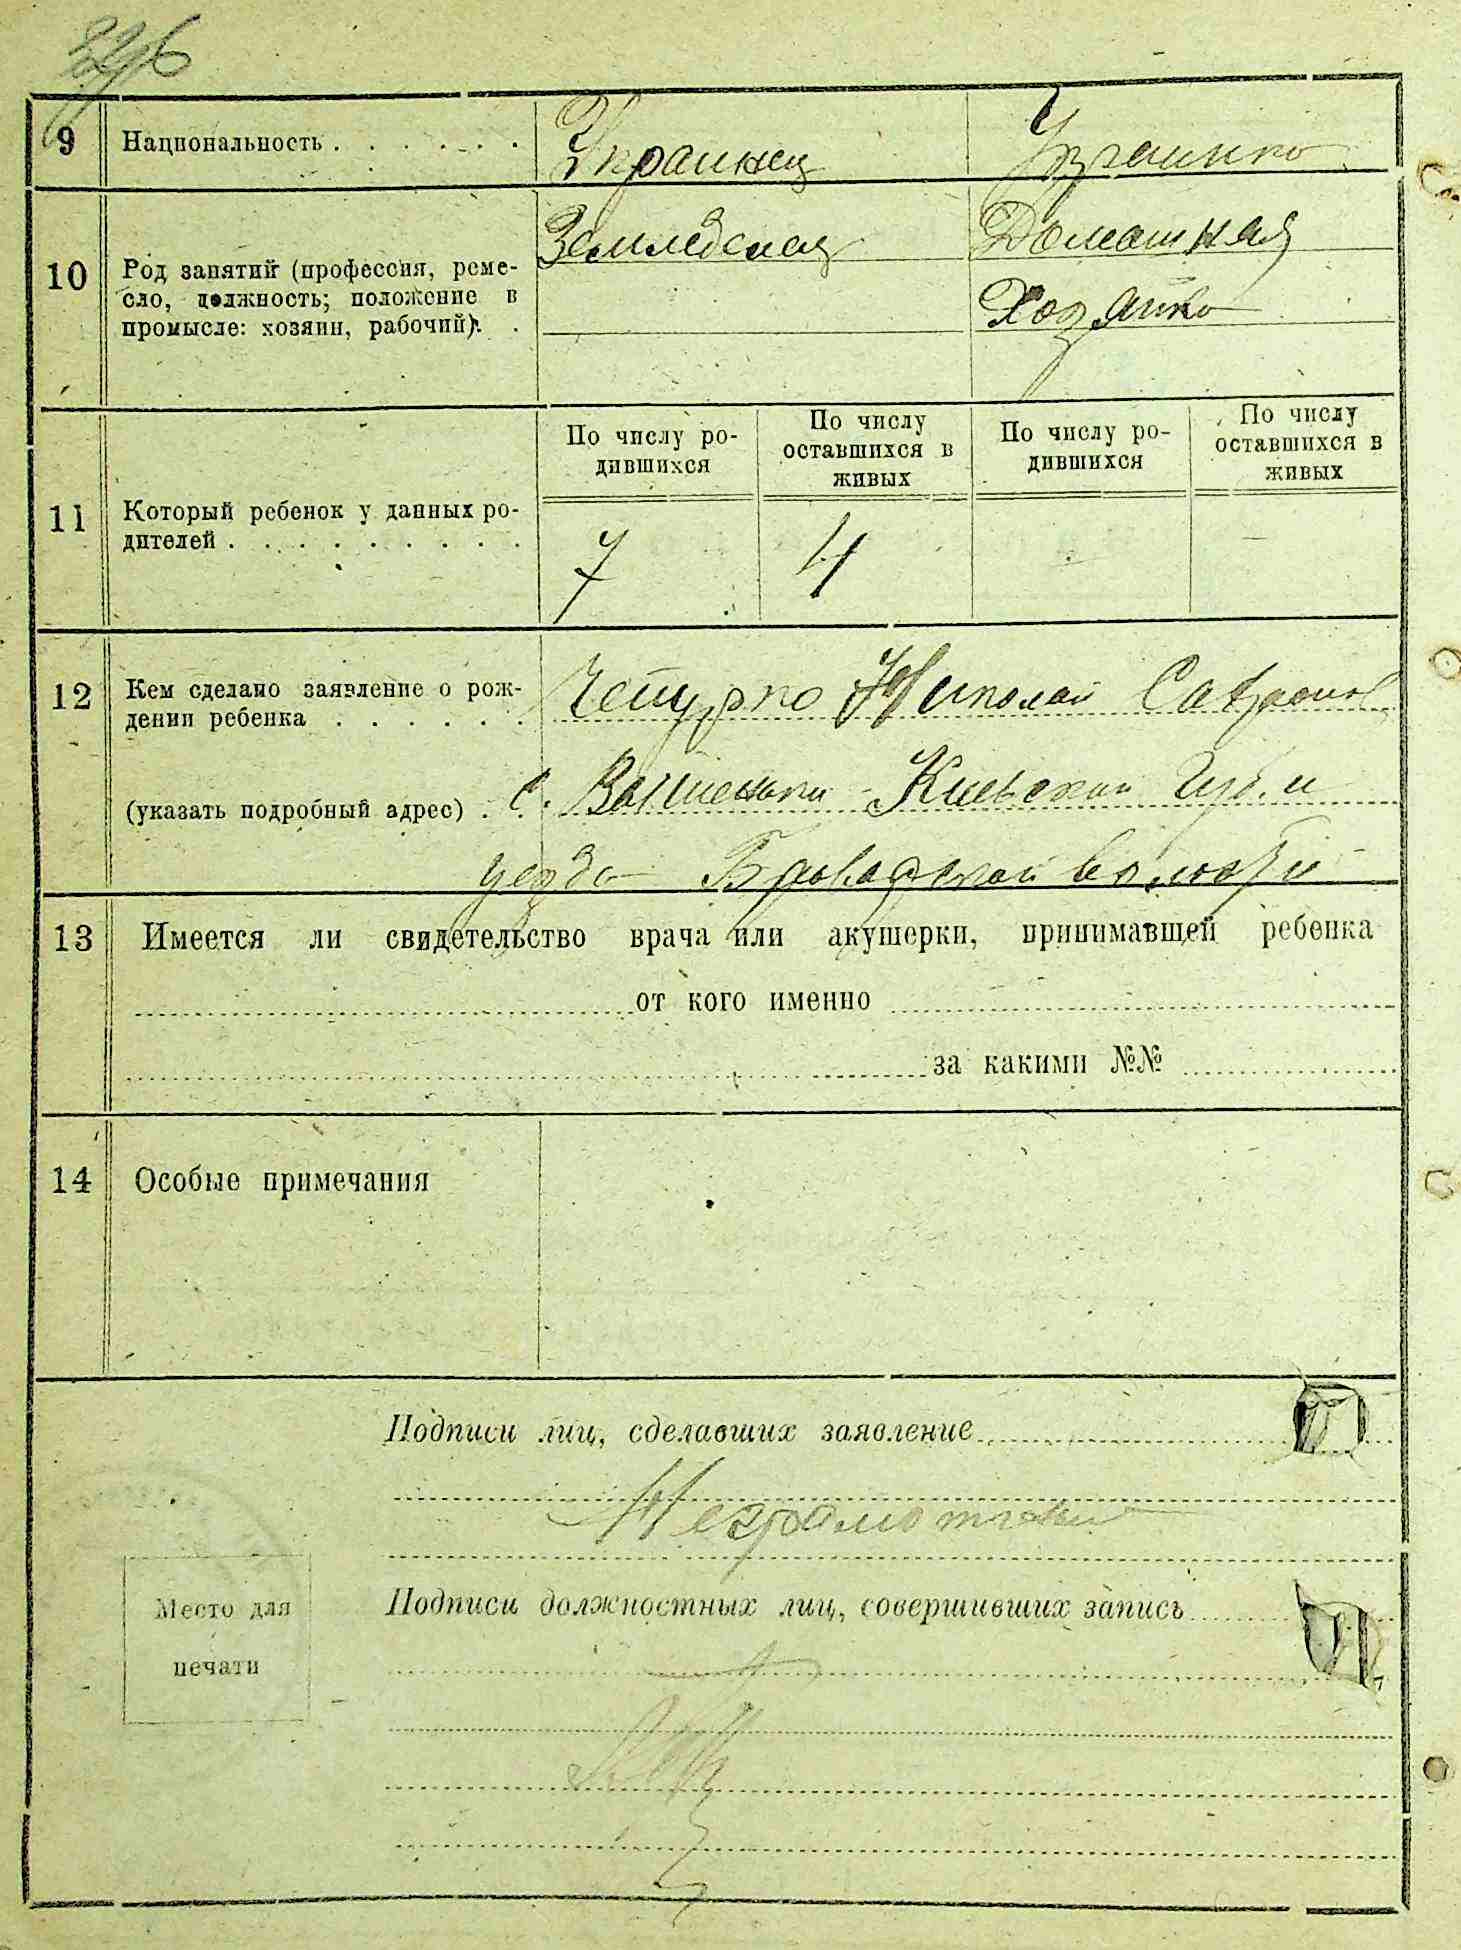 9 Национальность . . . . . . Украинец Украинка
10 Род занятий (профессия, ремесло, должность; положение в промысле: хозяин, рабочий). . Земледелец Домашняя
Хозяйка
По числу родившихся По числу оставшихся в живых По числу родившихся По числу оставшихся в живых
11 Который ребенок у данных ро-
дителей . . . . . . . . . 7 4
12 Кем сделано заявление о рож-
дении ребенка . . . . . . Николай
(указать подробный адрес) . с. Киевской Губ. и
уезда Броварской волости
13 Имеется ли свидетельство врача или акушерки, принимавшей ребенка
от кого именно
за какими №№
14 Особые примечания
Подписи лиц, сделавших заявление
Неграмотный
Подписи должностных лиц, совершивших запись
Место для
печати